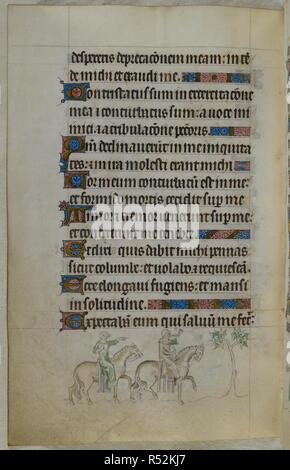 desperens deprecaconem meam: in te
de michi et exaudi me.
Contristatus sum in exercitacone
mea: conturbatus sum: a uoce ini
mici: a tribulacone peccoris.
Qm declinauerunt in me iniquita
tes: in ira molesti erant michi
Cor meum conturbatum est in me:
et formido mortis cecidit sup me
Timor et tremor uenerunt sup me:
et contexerunt me tenebre.
Et dixi quis dabit michi pennas
sicut columbe: et uolabo et requiescam.
Ecce elongaui fugiens: et mansi
in solitudine.
Expectabam eum qui saluum me fec:
alamy
Image ID: R52KJ7
www.alamy.com